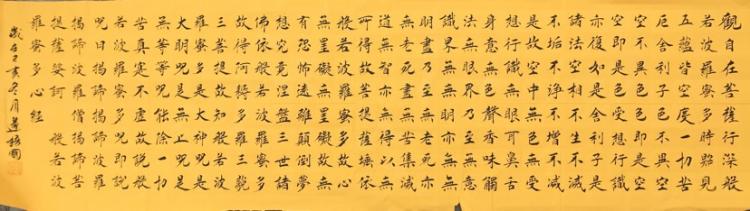 觀自在菩薩行深般
若波羅蜜多時照見
五蘊皆空度一切苦
厄舍利子色不異空
空不異色色即是空
空即是色受想行識
亦復如是舍利子是
諸法空相不生不滅
不垢不淨不增不減
是故空中無色無受
想行識無眼耳鼻舌
身意無色聲香味觸
法無眼界乃至無意
識界無無明亦無無
明盡乃至無老死亦
無老死盡無苦集滅
道無智亦無得以無
所得故菩提薩埵依
般若波羅蜜多故心
無罣礙無罣礙故無
有恐怖遠離顛倒夢
想究竟涅槃三世諸
佛依般若波羅蜜多
故得阿耨多羅三藐
三菩提故知般若波
羅蜜多是大神咒是
大明咒是無上咒是
無等等咒能除一切
苦真實不虛故說般
若波羅蜜多咒即說
咒曰揭諦揭諦波羅
揭諦波羅僧揭諦菩
提薩婆訶 般若波
羅蜜多心經
歲在己亥冬月